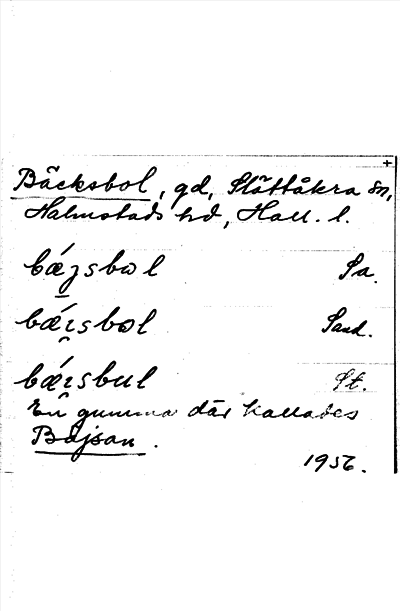 Bäcksbol, gd, Slättåkra sn,
Halmstads hd, Hall. l.
bǽʒsbωl Sa.
bǽɪsbωl Sand.
bǽɪsbul St.
En gumma där kallades
Bajsan.
1956.